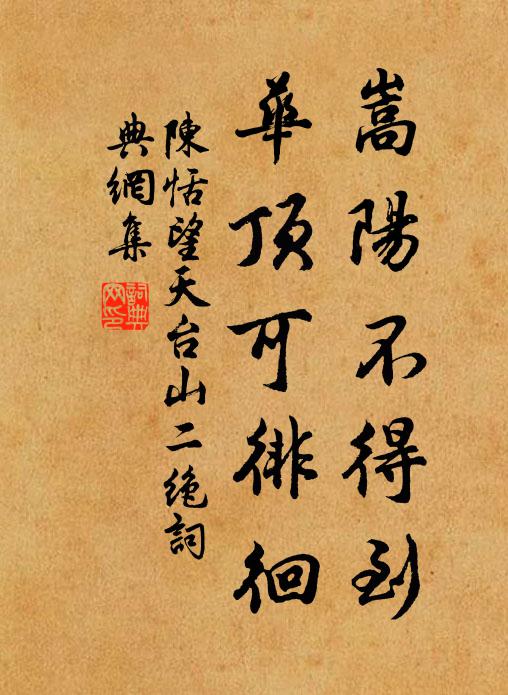 嵩陽不得到
華頂可徘徊
陳恬望天台山二絶詞
典網集
詞典網印